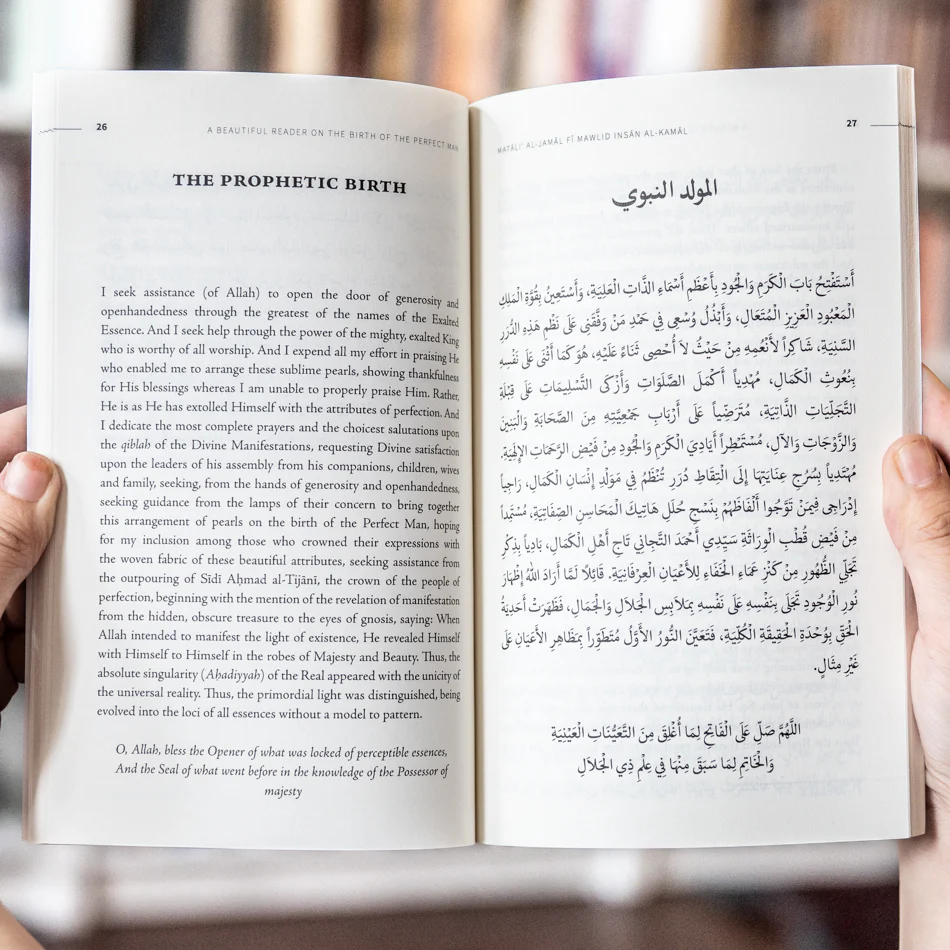 26
A BEAUTIFUL READER ON THE BIRTH OF THE PERFECT MAN
THE PROPHETIC BIRTH
I seek assistance (of Allah) to open the door of generosity and
openhandedness through the greatest of the names of the Exalted
Essence. And I seek help through the power of the mighty, exalted King
who is worthy of all worship. And I expend all my effort in praising He
who enabled me to arrange these sublime pearls, showing thankfulness
for His blessings whereas I am unable to properly praise Him. Rather,
He is as He has extolled Himself with the attributes of perfection. And
I dedicate the most complete prayers and the choicest salutations upon
the qiblah of the Divine Manifestations, requesting Divine satisfaction
upon the leaders of his assembly from his companions, children, wives
and family, seeking, from the hands of generosity and openhandedness,
seeking guidance from the lamps of their concern to bring together
this arrangement of pearls on the birth of the Perfect Man, hoping
for my inclusion among those who crowned their expressions with
the woven fabric of these beautiful attributes, seeking assistance from
the outpouring of Sīdī Aḥmad al-Tijānī, the crown of the people of
perfection, beginning with the mention of the revelation of manifestation
from the hidden, obscure treasure to the eyes of gnosis, saying: When
Allah intended to manifest the light of existence, He revealed Himself
with Himself to Himself in the robes of Majesty and Beauty. Thus, the
absolute singularity (Aḥadiyyah) of the Real appeared with the unicity of
the universal reality. Thus, the primordial light was distinguished, being
evolved into the loci of all essences without a model to pattern.
O, Allah, bless the Opener of what was locked of perceptible essences,
And the Seal of what went before in the knowledge of the Possessor of
majesty
MAṬĀLIʿ AL-JAMĀL FĪ MAWLID INSĀN AL-KAMĀL
27
المولد النبوي
أَسْتَفْتِحُ بَابَ الْكَرَمِ وَالْجُودِ بِأَعْظَمِ أَسْمَاءِ الذَّاتِ الْعَلِيَةِ، وَأَسْتَعِينُ بِقُوَّةِ الْمَلِكِ
الْمَعْبُودِ الْعَزِيزِ الْمُتَعَالِ، وَأَبْذُلُ وُسْعِى فِي حَمْدِ مَنْ وَفَّقَنِى عَلَى نَظْمِ هَذِهِ الدُّرَرِ
السَّنِيَةِ، شَاكِراً لأَنْعُمِهِ مِنْ حَيْثُ لاَ أُحْصِى ثَنَاءً عَلَيْهِ، هُوَ كَمَا أَثْنَى عَلَى نَفْسِهِ
بِنُعُوتِ الْكَمَالِ، مُهْدِياً أَكْمَلَ الصَّلَوَاتِ وَأَزْكَى التَّسْلِيمَاتِ عَلَى قِبْلَةِ
التَّجَلِّيَاتِ الذَّاتِيَّةِ، مُتَرَضِّياً عَلَى أَرْبَابِ جَمْعِيَّتِهِ مِنَ الصَّحَابَةِ وَالْبَنِينَ
وَالزَّوْجَاتِ وَالآلِ، مُسْتَمْطِراً أَيَادِيَ الْكَرَمِ وَالْجُودِ مِنْ فَيْضِ الرَّحَمَاتِ الإِلهِيَّةِ.
مُهْتَدِياً بِسُرُجِ عِنَايَتِهَا إِلَى الْتِقَاطِ دُرَرٍ تُنْظَمُ فِي مَوْلِدِ إِنْسَانِ الْكَمَالِ، رَاجِياً
إِدْرَاجِى فِيمَنْ تَوَّجُوا أَلْفَاظَهُمْ بِنَسْجِ حُلَلِ هَاتِيكَ الْمَحَاسِنِ الصِّفَاتِيَّةِ، مُسْتَمِدًّا
مِنْ فَيْضِ قُطْبِ الْوِرَاثَةِ سَيِّدِي أَحْمَدَ التَّجَانِي تَاجِ أَهْلِ الْكَمَالِ، بَادِياً بِذِكْرِ
تَجَلِّي الظُّهُورِ مِنْ كَنْزِ عَمَاءِ الْخَفَاءِ لِلأَعْيَانِ الْعِرْفَانِيَّةِ. قَائِلاً لَمَّا أَرَادَ اللهُ إِظْهَارَ
نُورِ الْوُجُودِ تَجَلَّى بِنَفْسِهِ عَلَى نَفْسِهِ بِمَلاَبِسِ الْجَلاَلِ وَالْجَمَالِ، فَظَهَرَتْ أَحَدِيَةُ
الْحَقِّ بِوُحْدَةِ الْحَقِيقَةِ الْكُلِّيَّةِ، فَتَعَيَّنَ النُّورُ الأَوَّلُ مُتَطَوِّراً بِمَظَاهِرِ الأَعْيَانِ عَلَى
غَيْرِ مِثَالٍ.
اللَّهُمَّ صَلِّ عَلَى الْفَاتِحِ لِمَا أُغْلِقَ مِنَ التَّعَيُّنَاتِ الْعَيْنِيَّةِ
وَالْخَاتِمِ لِمَا سَبَقَ مِنْهَا فِي عِلْمِ ذِي الْجَلاَلِ